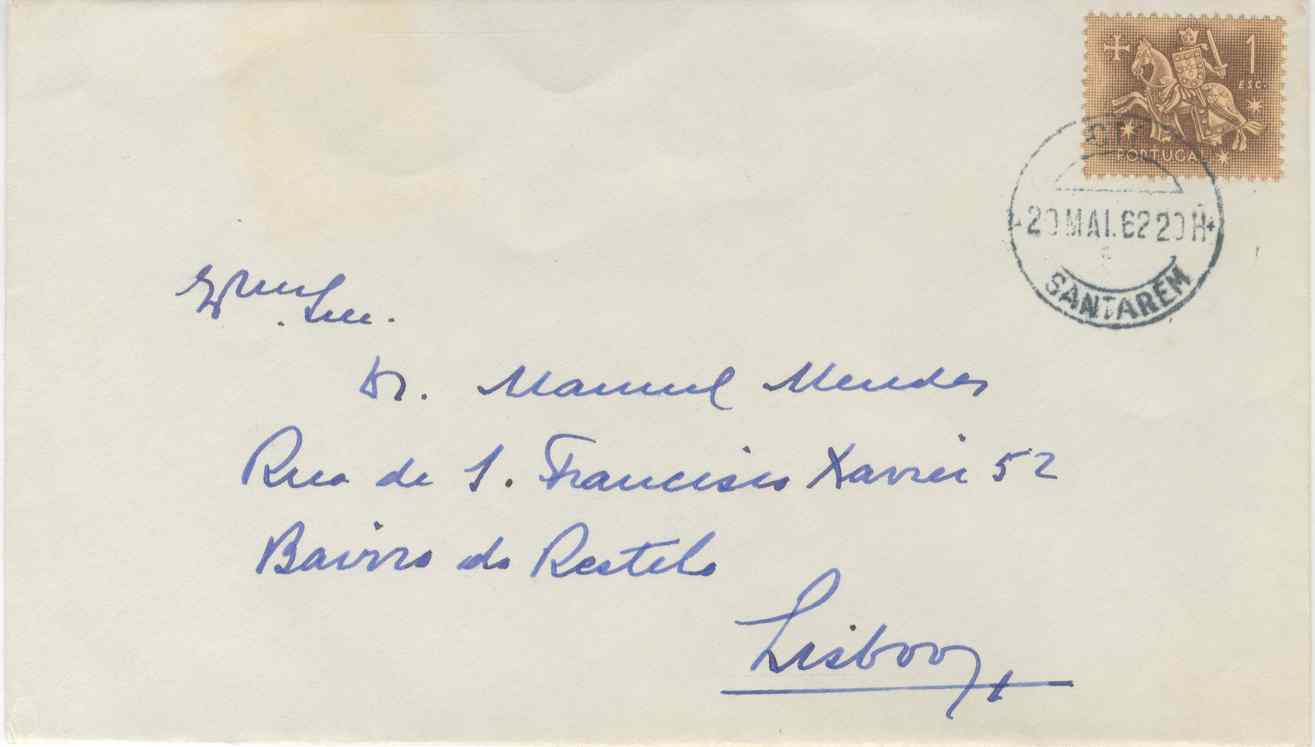 1
ESC.
PORTUGAL
CTT
20 MAI. 62 20 H
SANTARÉM
Exmº. Snr.
Dr. Manuel Mendes
Rua de S. Francisco Xavier 52
Bairro do Restelo
Lisboa